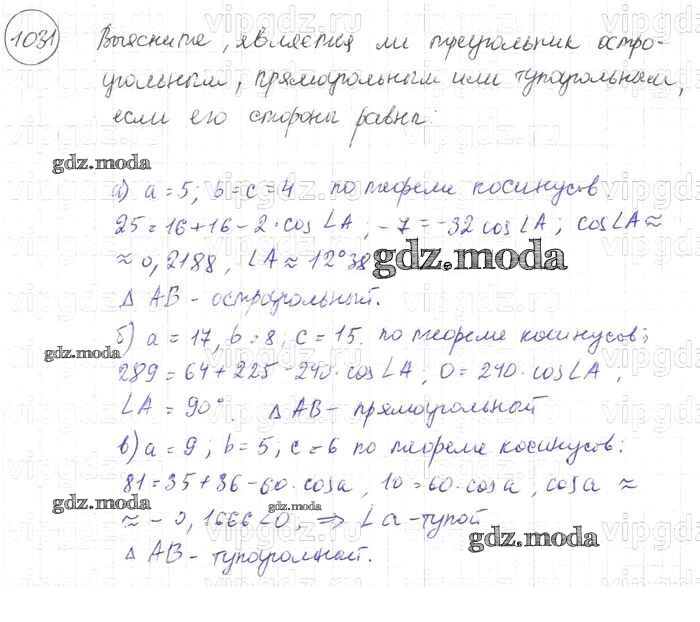 1031 Выясните, является ли треугольник остро-
угольным, прямоугольным или тупоугольным,
если его стороны равны:
gdz.moda
а) a = 5; b = c = 4 по теореме косинусов.
25 = 16 + 16 - 2 · cos ∠A, - 7 = -32 cos ∠A; cos ∠A ≈
≈ 0,2188, ∠A ≈ 12°38
gdz.moda
Δ AB - остроугольный.
б) a = 17, b = 8, c = 15. по теореме косинусов;
gdz.moda
289 = 64 + 225 - 240 · cos ∠A; 0 = 240 · cos ∠A,
∠A = 90°. Δ AB - прямоугольный
в) a = 9; b = 5; c = 6 по теореме косинусов:
81 = 35 + 36 - 60 · cos a, 10 = 60 · cos a, cos a ≈
gdz.moda
≈ - 0,1666 < 0, ⇒ ∠a - тупой
gdz.moda
Δ AB - тупоугольный.